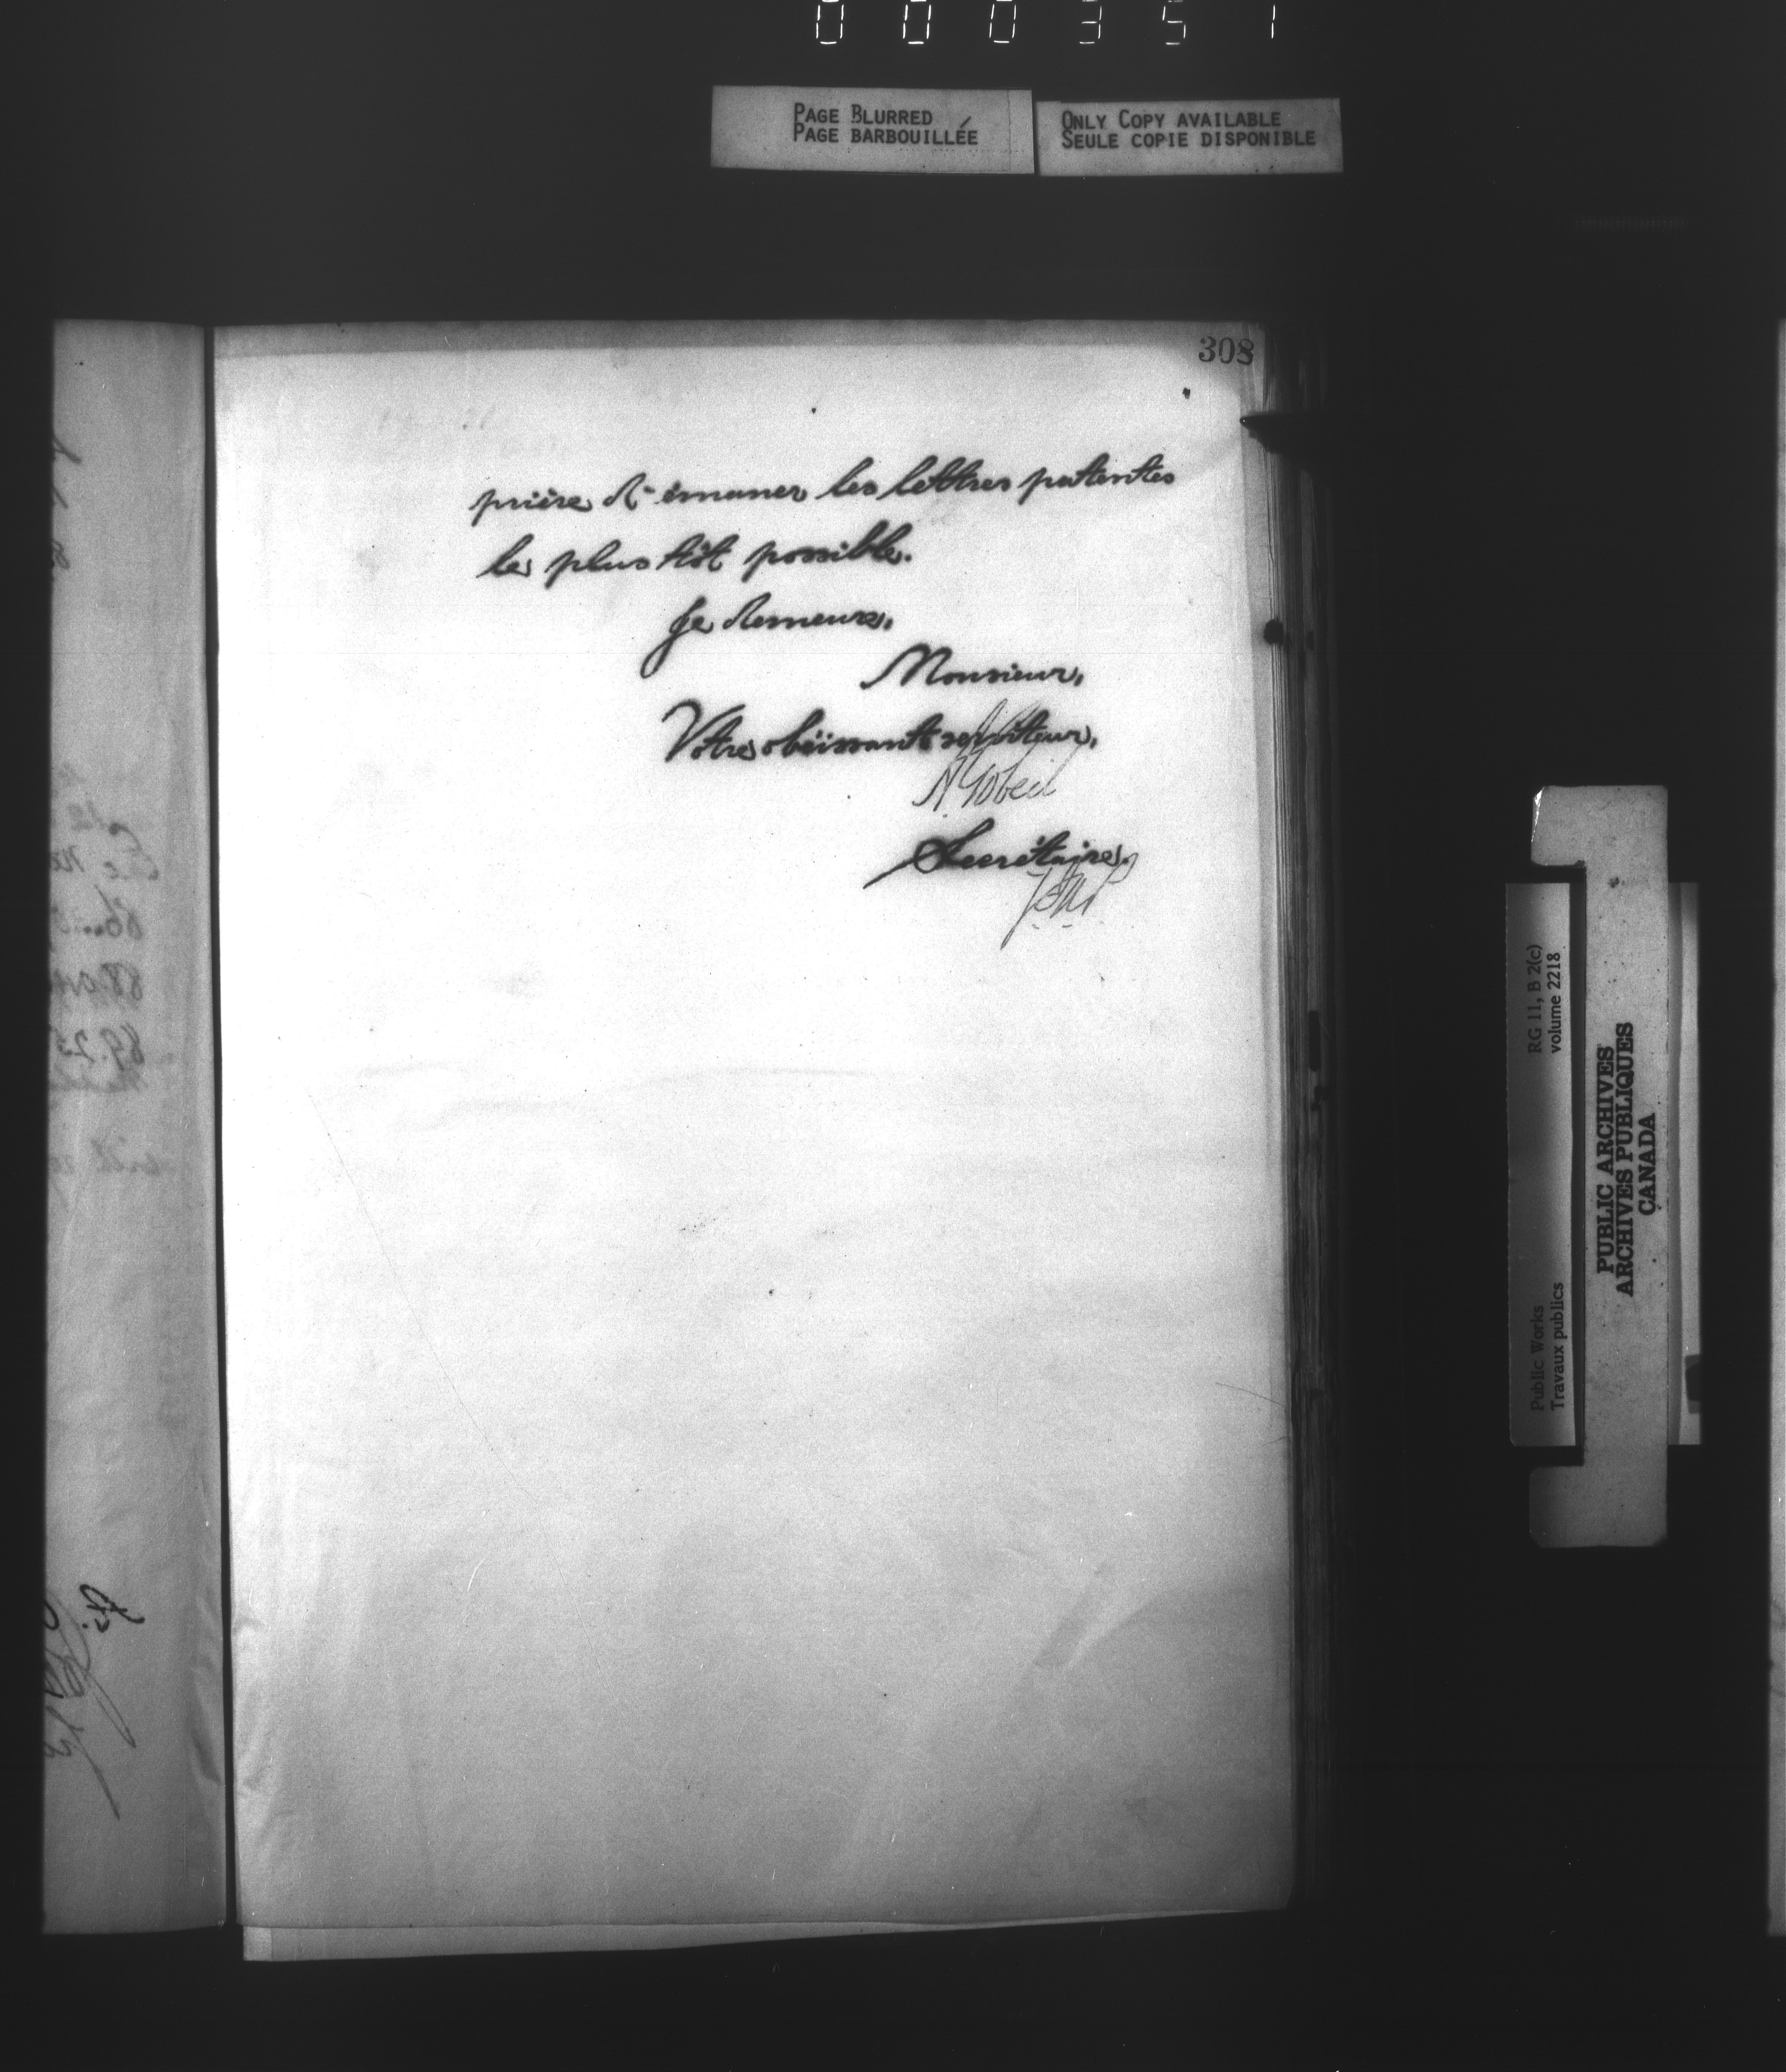 000351
PAGE BLURRED
PAGE BARBOUILLÉE
ONLY COPY AVAILABLE
SEULE COPIE DISPONIBLE
308
prière d'émaner les lettres patentes
le plus tôt possible.
Je demeure,
Monsieur,
Votre obéissant serviteur,
A Gobeil
Secrétaire.
RG 11, B 2(c)
volume 2218
Public Works
Travaux publics
PUBLIC ARCHIVES
ARCHIVES PUBLIQUES
CANADA